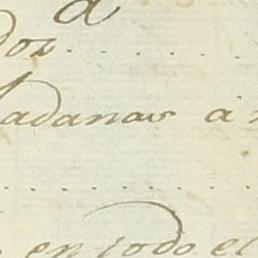 a
dos
adanas a
en todo el